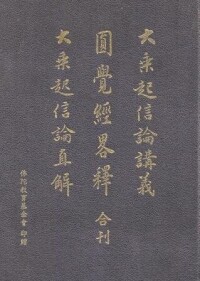 大乘起信論講義
圓覺經畧釋 合刊
大乘起信論直解
佛陀教育基金會 印贈